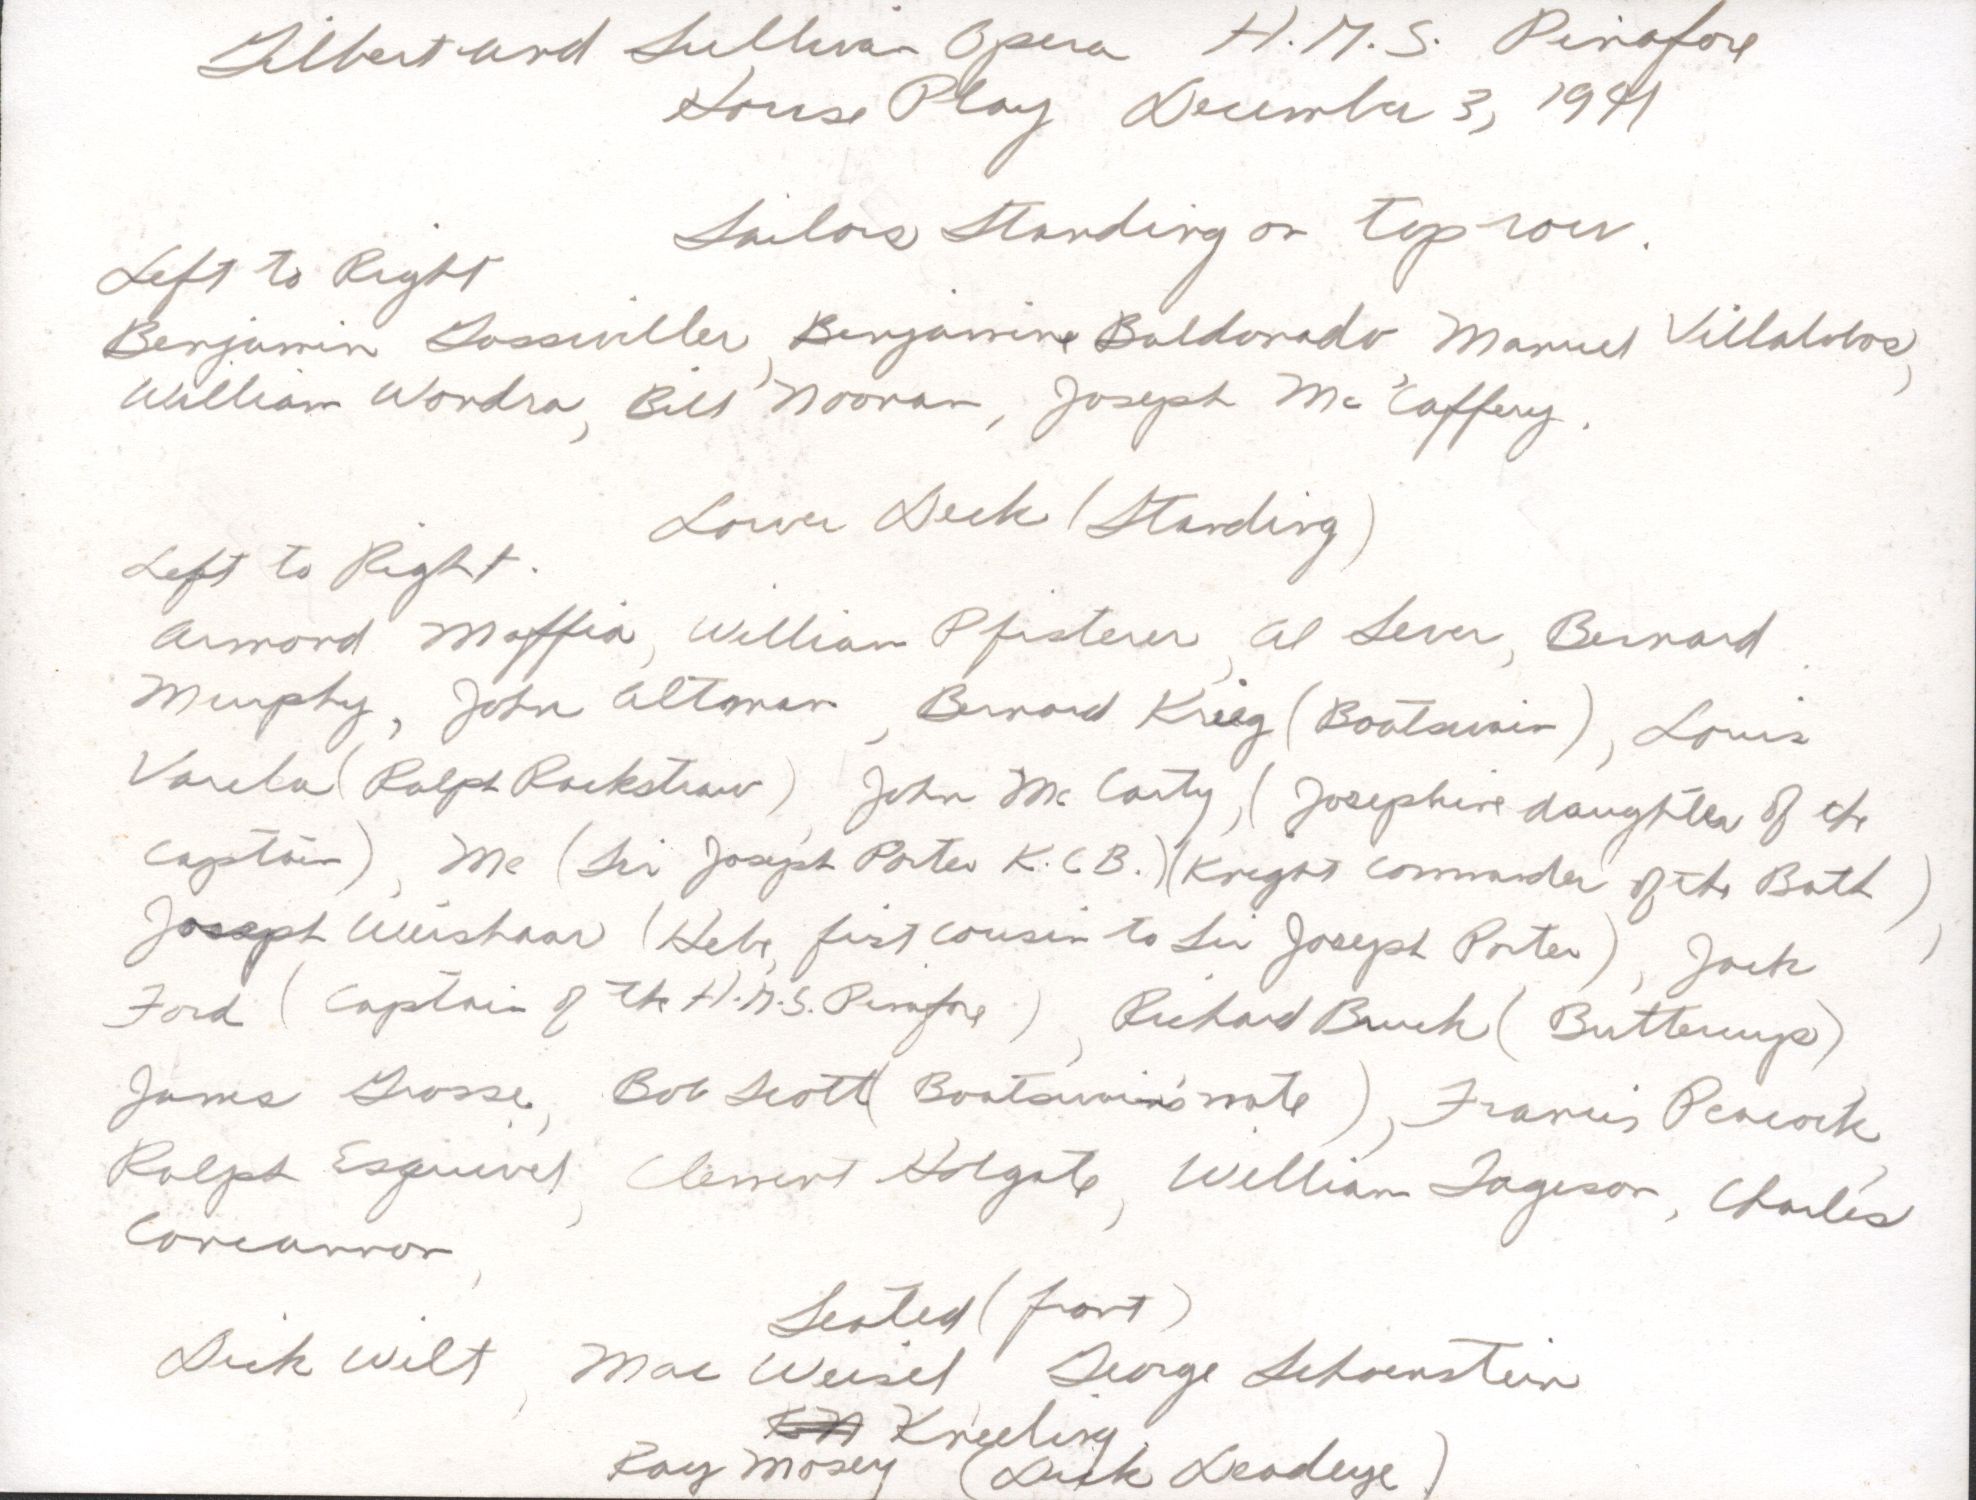 Gilbert and Sullivan Opera H.M.S. Pinafore
House Play December 3, 1941
Sailors Standing on top row.
Left to Right
Benjamin Gosswiller, Benjamine Baldonado, Manuel Villalobos,
William Wondra, Bill Noonan, Joseph McCaffery.
Lower Deck (Standing)
Left to Right.
Armond Maffia, William Pfisterer, Al Lever, Bernard
Murphy, John Altman, Bernard Krieg (Boatswain), Louis
Varela (Ralph Rackstraw) John McCarty, (Josephine daughter of the
Captain), Me (Sir Joseph Porter K.C.B.) (Knight Commander of the Bath),
Joseph Weishaar (Hebe, first cousin to Sir Joseph Porter), Jack
Ford (Captain of the H.M.S. Pinafore), Richard Bruck (Buttercup)
James Grosse, Bob Scott (Boatswain's mate), Francis Peacock,
Ralph Esquivel, Clement Holgate, William Fageson, Charles
Concannon,
Seated (front)
Dick Wilt, Mac Weisel George Schoenstein
Kneeling
Ray Mosey (Dick Deadeye)